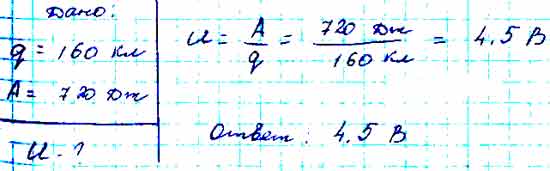 Дано:
q = 160 кл
A = 720 Дж
U - ?
U = A/q = 720 Дж/160 кл = 4.5 В
Ответ: 4.5 В